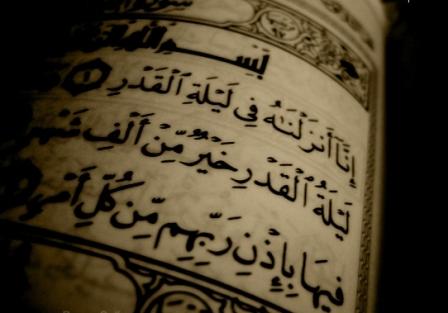 بِسْمِ ٱللَّهِ
إِنَّآ أَنزَلْنَـٰهُ فِى لَيْلَةِ ٱلْقَدْرِ ١
لَيْلَةُ ٱلْقَدْرِ خَيْرٌ مِّنْ أَلْفِ شَهْرٍ
فِيهَا بِإِذْنِ رَبِّهِم مِّن كُلِّ أَمْرٍ